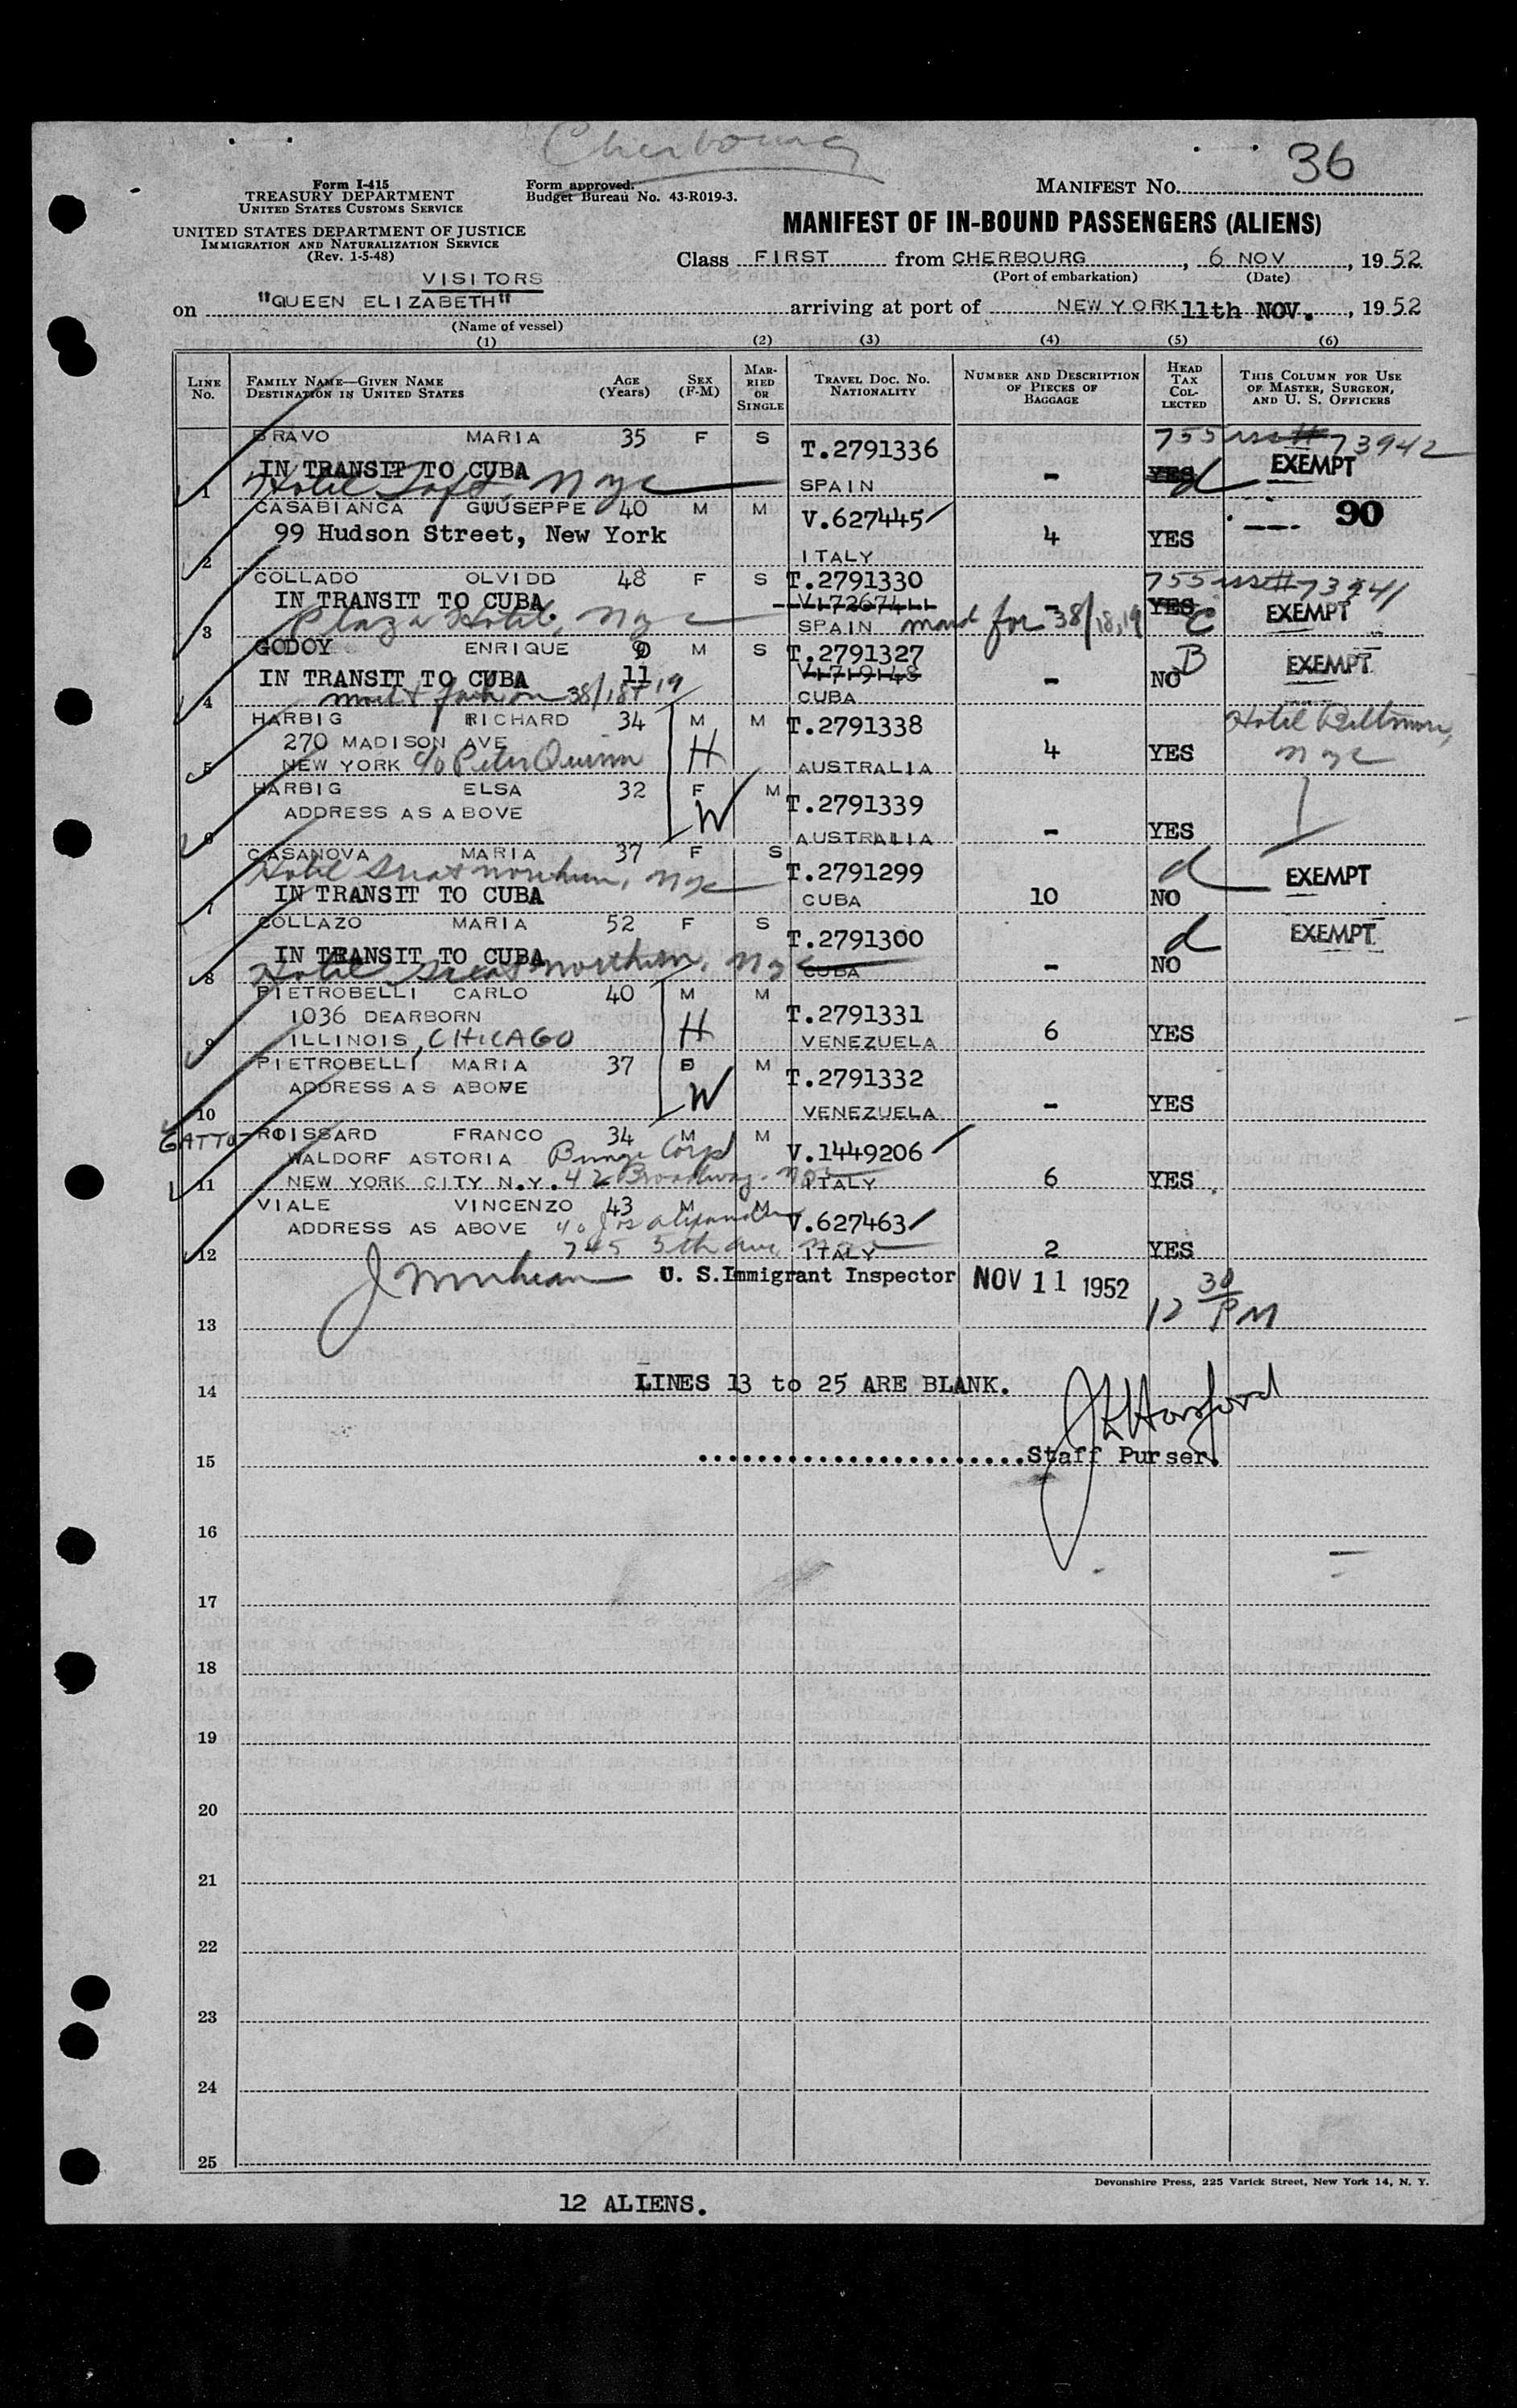 Cherbourg
36
Form I-415
TREASURY DEPARTMENT
UNITED STATES CUSTOMS SERVICE
UNITED STATES DEPARTMENT OF JUSTICE
IMMIGRATION AND NATURALIZATION SERVICE
(Rev. 1-5-48)
Form approved.
Budget Bureau No. 43-R019-3.
MANIFEST NO.
MANIFEST OF IN-BOUND PASSENGERS (ALIENS)
Class FIRST from CHERBOURG, 6 NOV, 1952
(Port of embarkation) (Date)
VISITORS
on "QUEEN ELIZABETH" arriving at port of NEW YORK 11th NOV., 1952
(Name of vessel)
(1) (2) (3) (4) (5) (6)
LINE No. FAMILY NAME—GIVEN NAME DESTINATION IN UNITED STATES AGE (Years) SEX (F-M) MARRIED OR SINGLE TRAVEL DOC. NO. NATIONALITY NUMBER AND DESCRIPTION OF PIECES OF BAGGAGE HEAD TAX COLLECTED THIS COLUMN FOR USE OF MASTER, SURGEON, AND U. S. OFFICERS
BRAVO MARIA 35 F S T.2791336 755 73942
IN TRANSIT TO CUBA - YES d EXEMPT
1 Hotel Taft, NYC SPAIN
CASABIANCA GIUSEPPE 40 M M V.627445 90
99 Hudson Street, New York 4 YES
2 ITALY
COLLADO OLVIDD 48 F S T.2791330 755 73941
IN TRANSIT TO CUBA V.1726741 - YES EXEMPT
3 Plaza Hotel, NYC SPAIN maid for 38/18,19 C
GODOY ENRIQUE 9 M S T.2791327 B EXEMPT
IN TRANSIT TO CUBA 11 V.171914 - NO
4 38/18+19 CUBA
HARBIG RICHARD 34 M M T.2791338 Hotel Biltmore,
270 MADISON AVE H 4 YES NYC
5 NEW YORK c/o Peter Quinn AUSTRALIA
HARBIG ELSA 32 F M T.2791339
ADDRESS AS ABOVE W - YES
6 AUSTRALIA
CASANOVA MARIA 37 F S T.2791299 d EXEMPT
Hotel Great Northern, NYC
7 IN TRANSIT TO CUBA CUBA 10 NO
COLLAZO MARIA 52 F S T.2791300 d EXEMPT
IN TRANSIT TO CUBA - NO
8 Hotel Great Northern, NYC CUBA
PIETROBELLI CARLO 40 M M T.2791331
1036 DEARBORN H 6 YES
9 ILLINOIS, CHICAGO VENEZUELA
PIETROBELLI MARIA 37 M T.2791332
ADDRESS AS ABOVE W
10 VENEZUELA - YES
GATTO- ROISSARD FRANCO 34 M M V.1449206
WALDORF ASTORIA Bunge Corp
11 NEW YORK CITY N.Y. 42 Broadway. NYC ITALY 6 YES
VIALE VINCENZO 43 M M V.627463
ADDRESS AS ABOVE c/o Jos Alexander
12 745 5th Ave, NYC ITALY 2 YES
U. S.Immigrant Inspector NOV 11 1952 12 30 PM
13
14 LINES 13 to 25 ARE BLANK.
15 Staff Purser.
16
17
18
19
20
21
22
23
24
25
Devonshire Press, 225 Varick Street, New York 14, N. Y.
12 ALIENS.